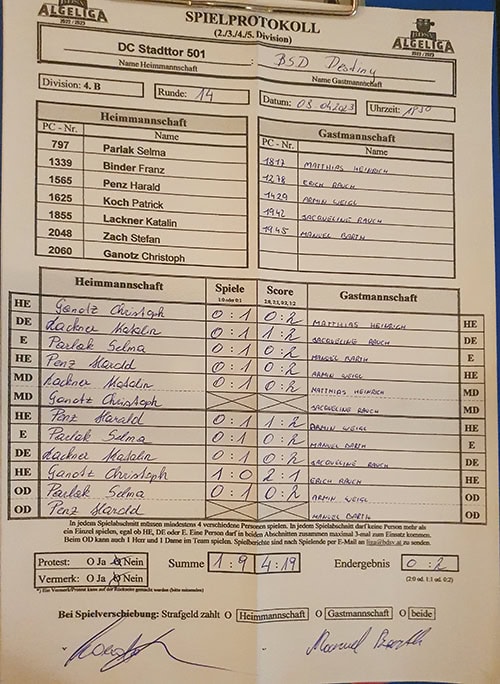 BDSV
ALGELIGA
2022 / 2023
SPIELPROTOKOLL
(2./3./4./5. Division)
ALGELIGA
2022 / 2023
DC Stadttor 501
Name Heimmannschaft
BSD Destiny
Name Gastmannschaft
Division: 4. B
Runde: 14
Datum: 03.04.2023
Uhrzeit: 1930
Heimmannschaft
PC - Nr. Name
797 Parlak Selma
1339 Binder Franz
1565 Penz Harald
1625 Koch Patrick
1855 Lackner Katalin
2048 Zach Stefan
2060 Ganotz Christoph
Gastmannschaft
PC - Nr. Name
1817 MATTHIAS HEINRICH
1278 ERICH RAUCH
1429 ARMIN WEIGL
1942 JACQUELINE RAUCH
1945 MANUEL BARTH
Heimmannschaft Spiele Score Gastmannschaft
1:0 oder 0:1 2:0, 2:1, 0:2, 1:2
HE Ganotz Christoph 0 : 1 0 : 2 MATTHIAS HEINRICH HE
DE Lackner Katalin 0 : 1 1 : 2 JACQUELINE RAUCH DE
E Parlak Selma 0 : 1 0 : 2 MANUEL BARTH E
HE Penz Harald 0 : 1 0 : 2 ARMIN WEIGL HE
MD Lackner Katalin 0 : 1 0 : 2 MATTHIAS HEINRICH MD
MD Ganotz Christoph JACQUELINE RAUCH MD
HE Penz Harald 0 : 1 1 : 2 ARMIN WEIGL HE
E Parlak Selma 0 : 1 0 : 2 MANUEL BARTH E
DE Lackner Katalin 0 : 1 0 : 2 JACQUELINE RAUCH DE
HE Ganotz Christoph 1 : 0 2 : 1 ERICH RAUCH HE
OD Parlak Selma 0 : 1 0 : 2 ARMIN WEIGL OD
OD Penz Harald MANUEL BARTH OD
In jedem Spielabschnitt müssen mindestens 4 verschiedene Personen spielen. In jedem Spielabschnitt darf keine Person mehr als
ein Einzel spielen, egal ob HE, DE oder E. Eine Person darf in beiden Abschnitten zusammen maximal 3-mal zum Einsatz kommen.
Beim OD kann auch 1 Herr und 1 Dame im Team spielen. Spielberichte sind nach Spielende per E-Mail an liga@bdsv.at zu senden.
Protest: O Ja O Nein
Summe 1 : 9 4 : 19
Endergebnis 0 : 2
(2:0 od. 1:1 od. 0:2)
Vermerk: O Ja O Nein
Bei Spielverschiebung: Strafgeld zahlt O Heimmannschaft O Gastmannschaft O beide
Manuel Barth